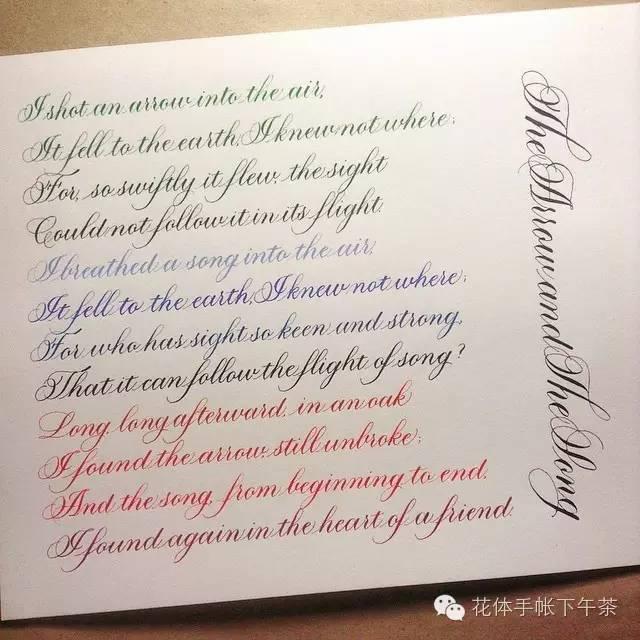 I shot an arrow into the air,
It fell to the earth, I knew not where;
For, so swiftly it flew, the sight
Could not follow it in its flight.
I breathed a song into the air,
It fell to the earth, I knew not where;
For who has sight so keen and strong,
That it can follow the flight of song?
Long, long afterward, in an oak
I found the arrow, still unbroke;
And the song, from beginning to end,
I found again in the heart of a friend.
The Arrow and The Song
花体手帐下午茶